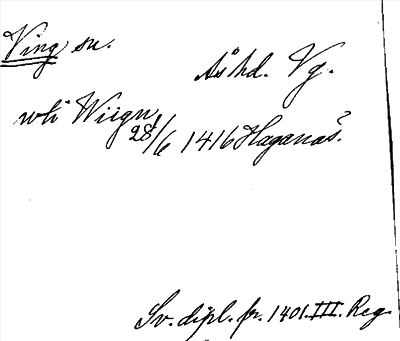 Ving sn.
Ås hd. Vg.
wti Wiign
28/6 1416 Haganäs.
Sv. dipl. fr. 1401. III. Reg.